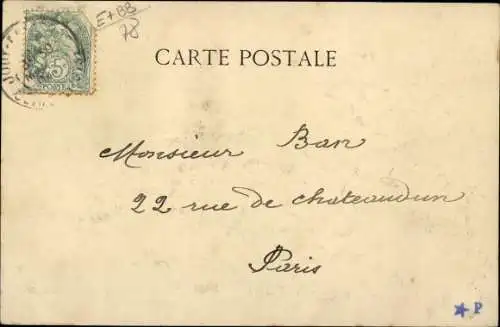 E+BB
78
5
POSTES
CARTE POSTALE
Monsieur Ban
22 rue de chateaudun
Paris
P